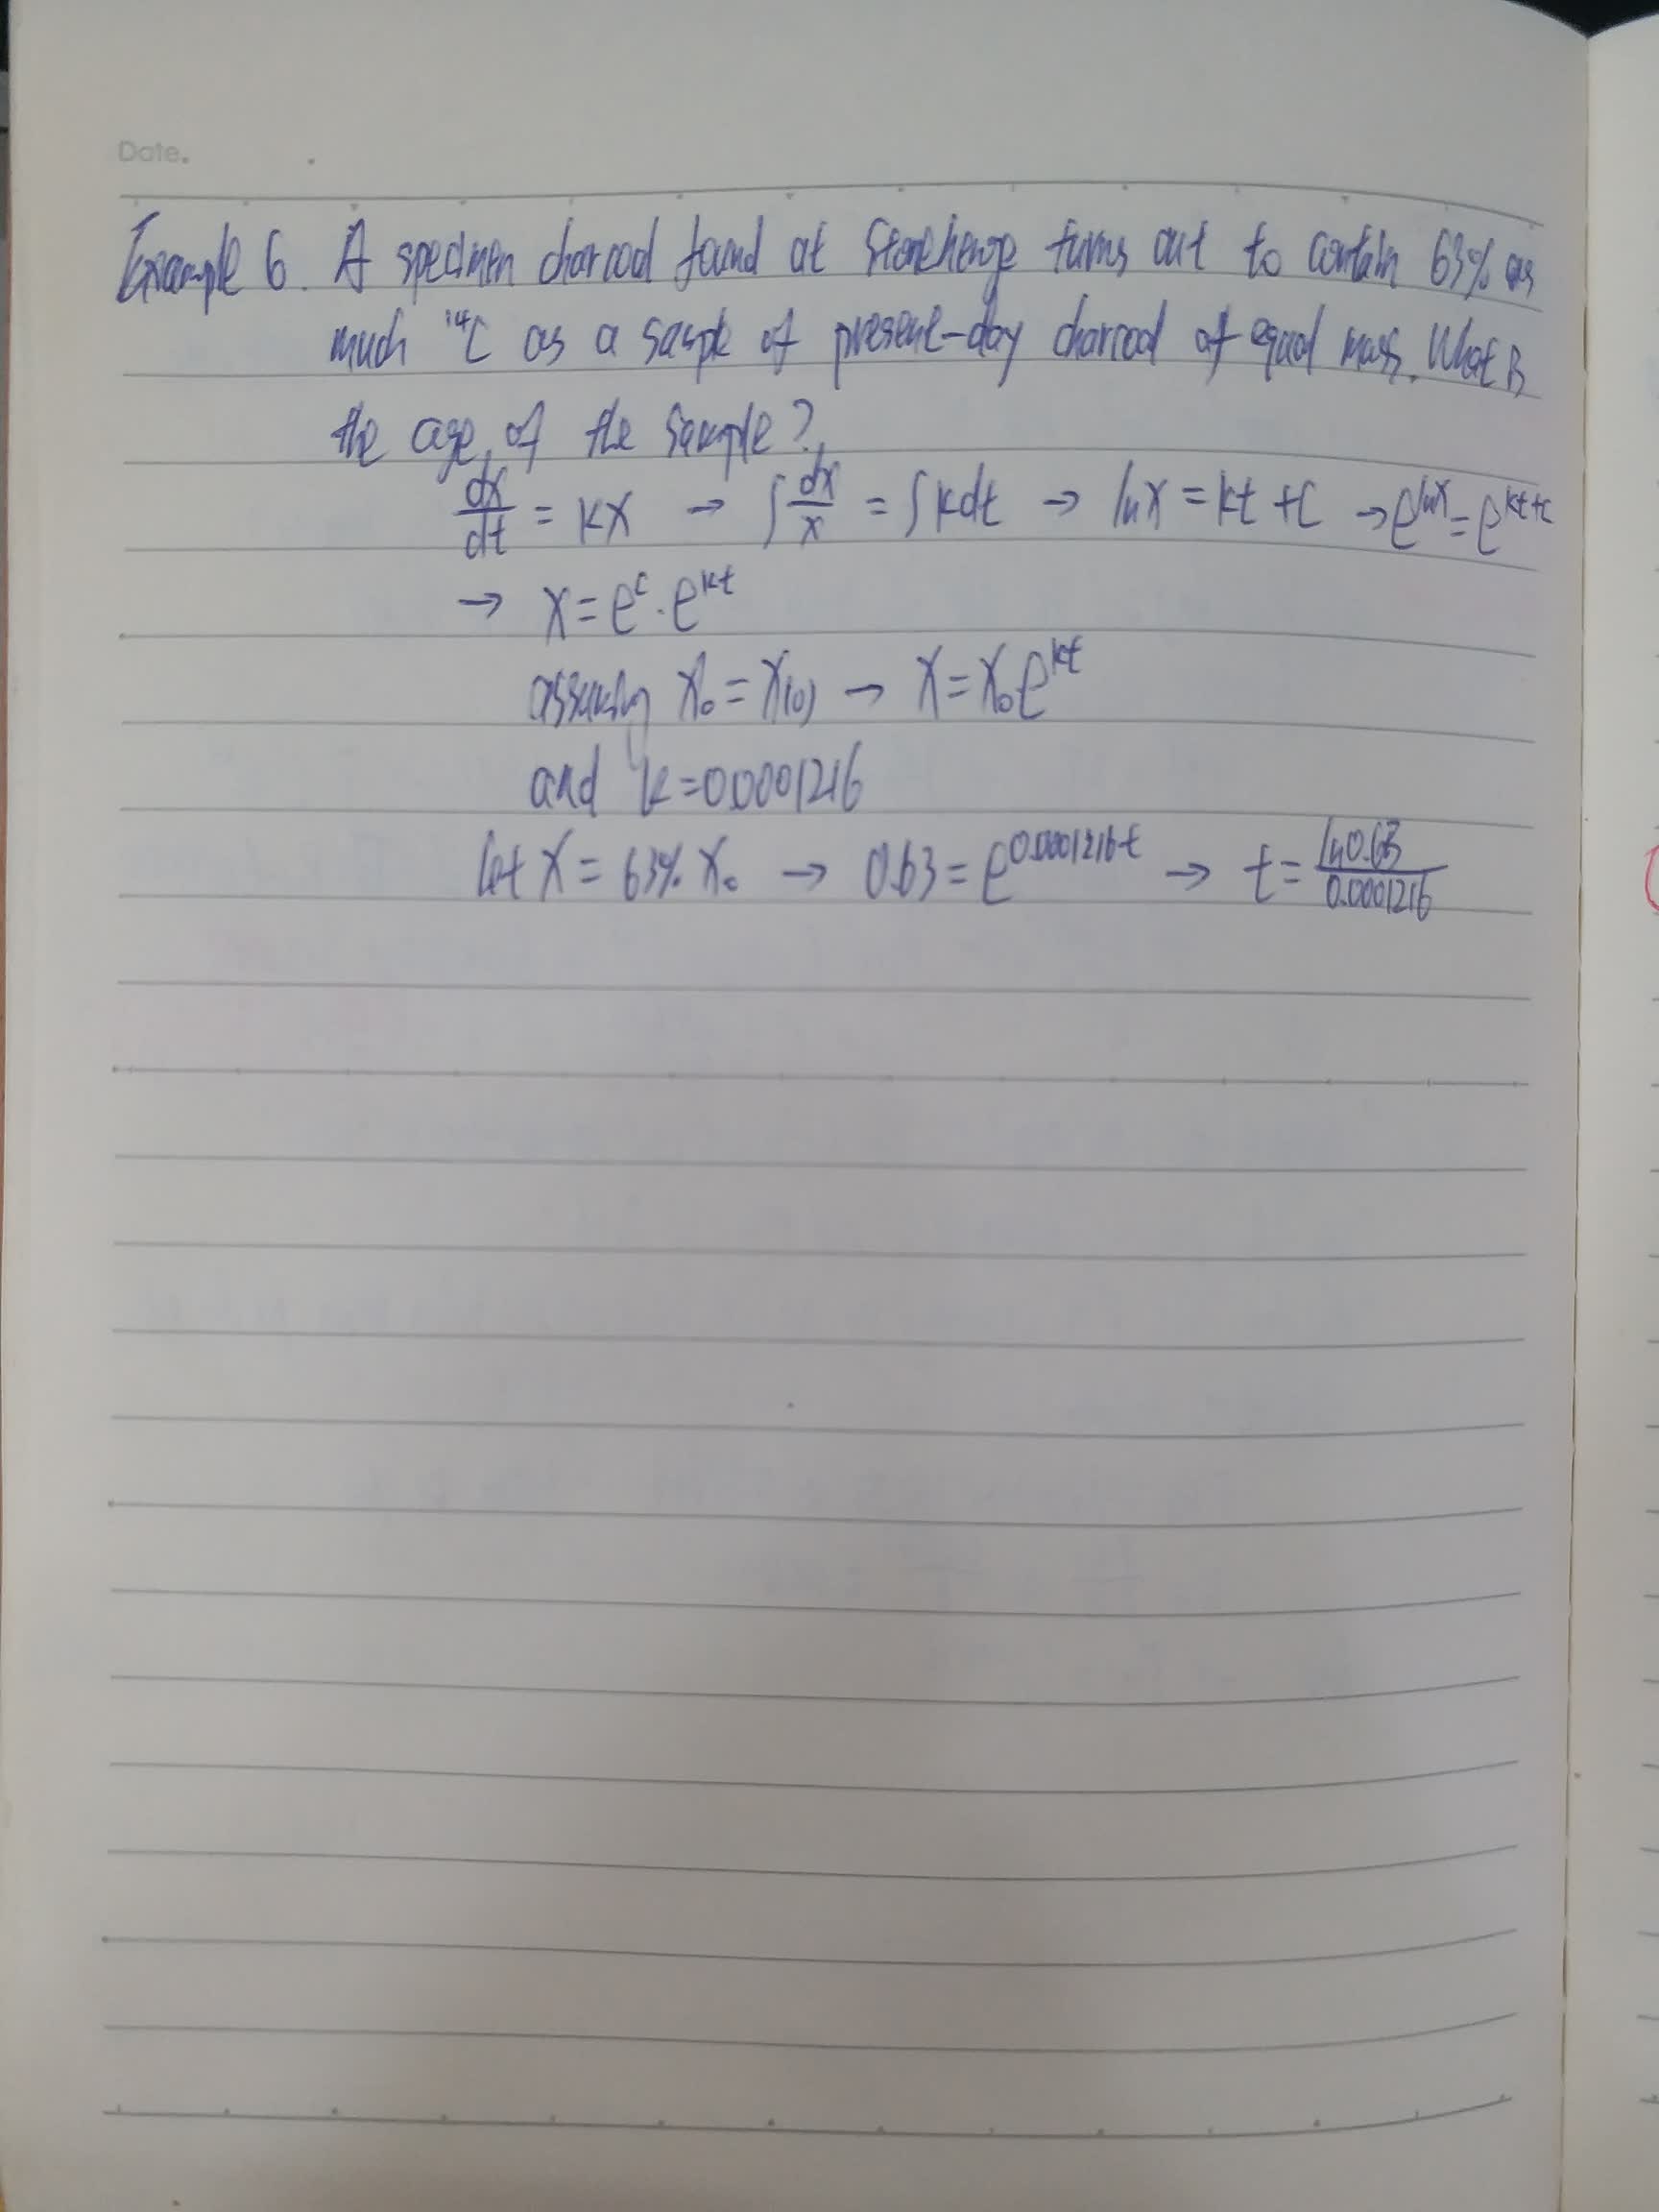 Date.
Example 6. A specimen charcoal found at Stonehenge turns out to contain 63% as
much ¹⁴C as a sample of present-day charcoal of equal mass. What is
the age of the sample?
dx/dt = kx → ∫ dx/x = ∫ k dt → ln x = kt + C → e^{ln x} = e^{kt+c}
→ x = e^c · e^{kt}
assuming x₀ = x(0) → x = x₀e^{kt}
and k = 0.0001216
let x = 63% x₀ → 0.63 = e^{0.0001216t} → t = ln0.63/0.0001216